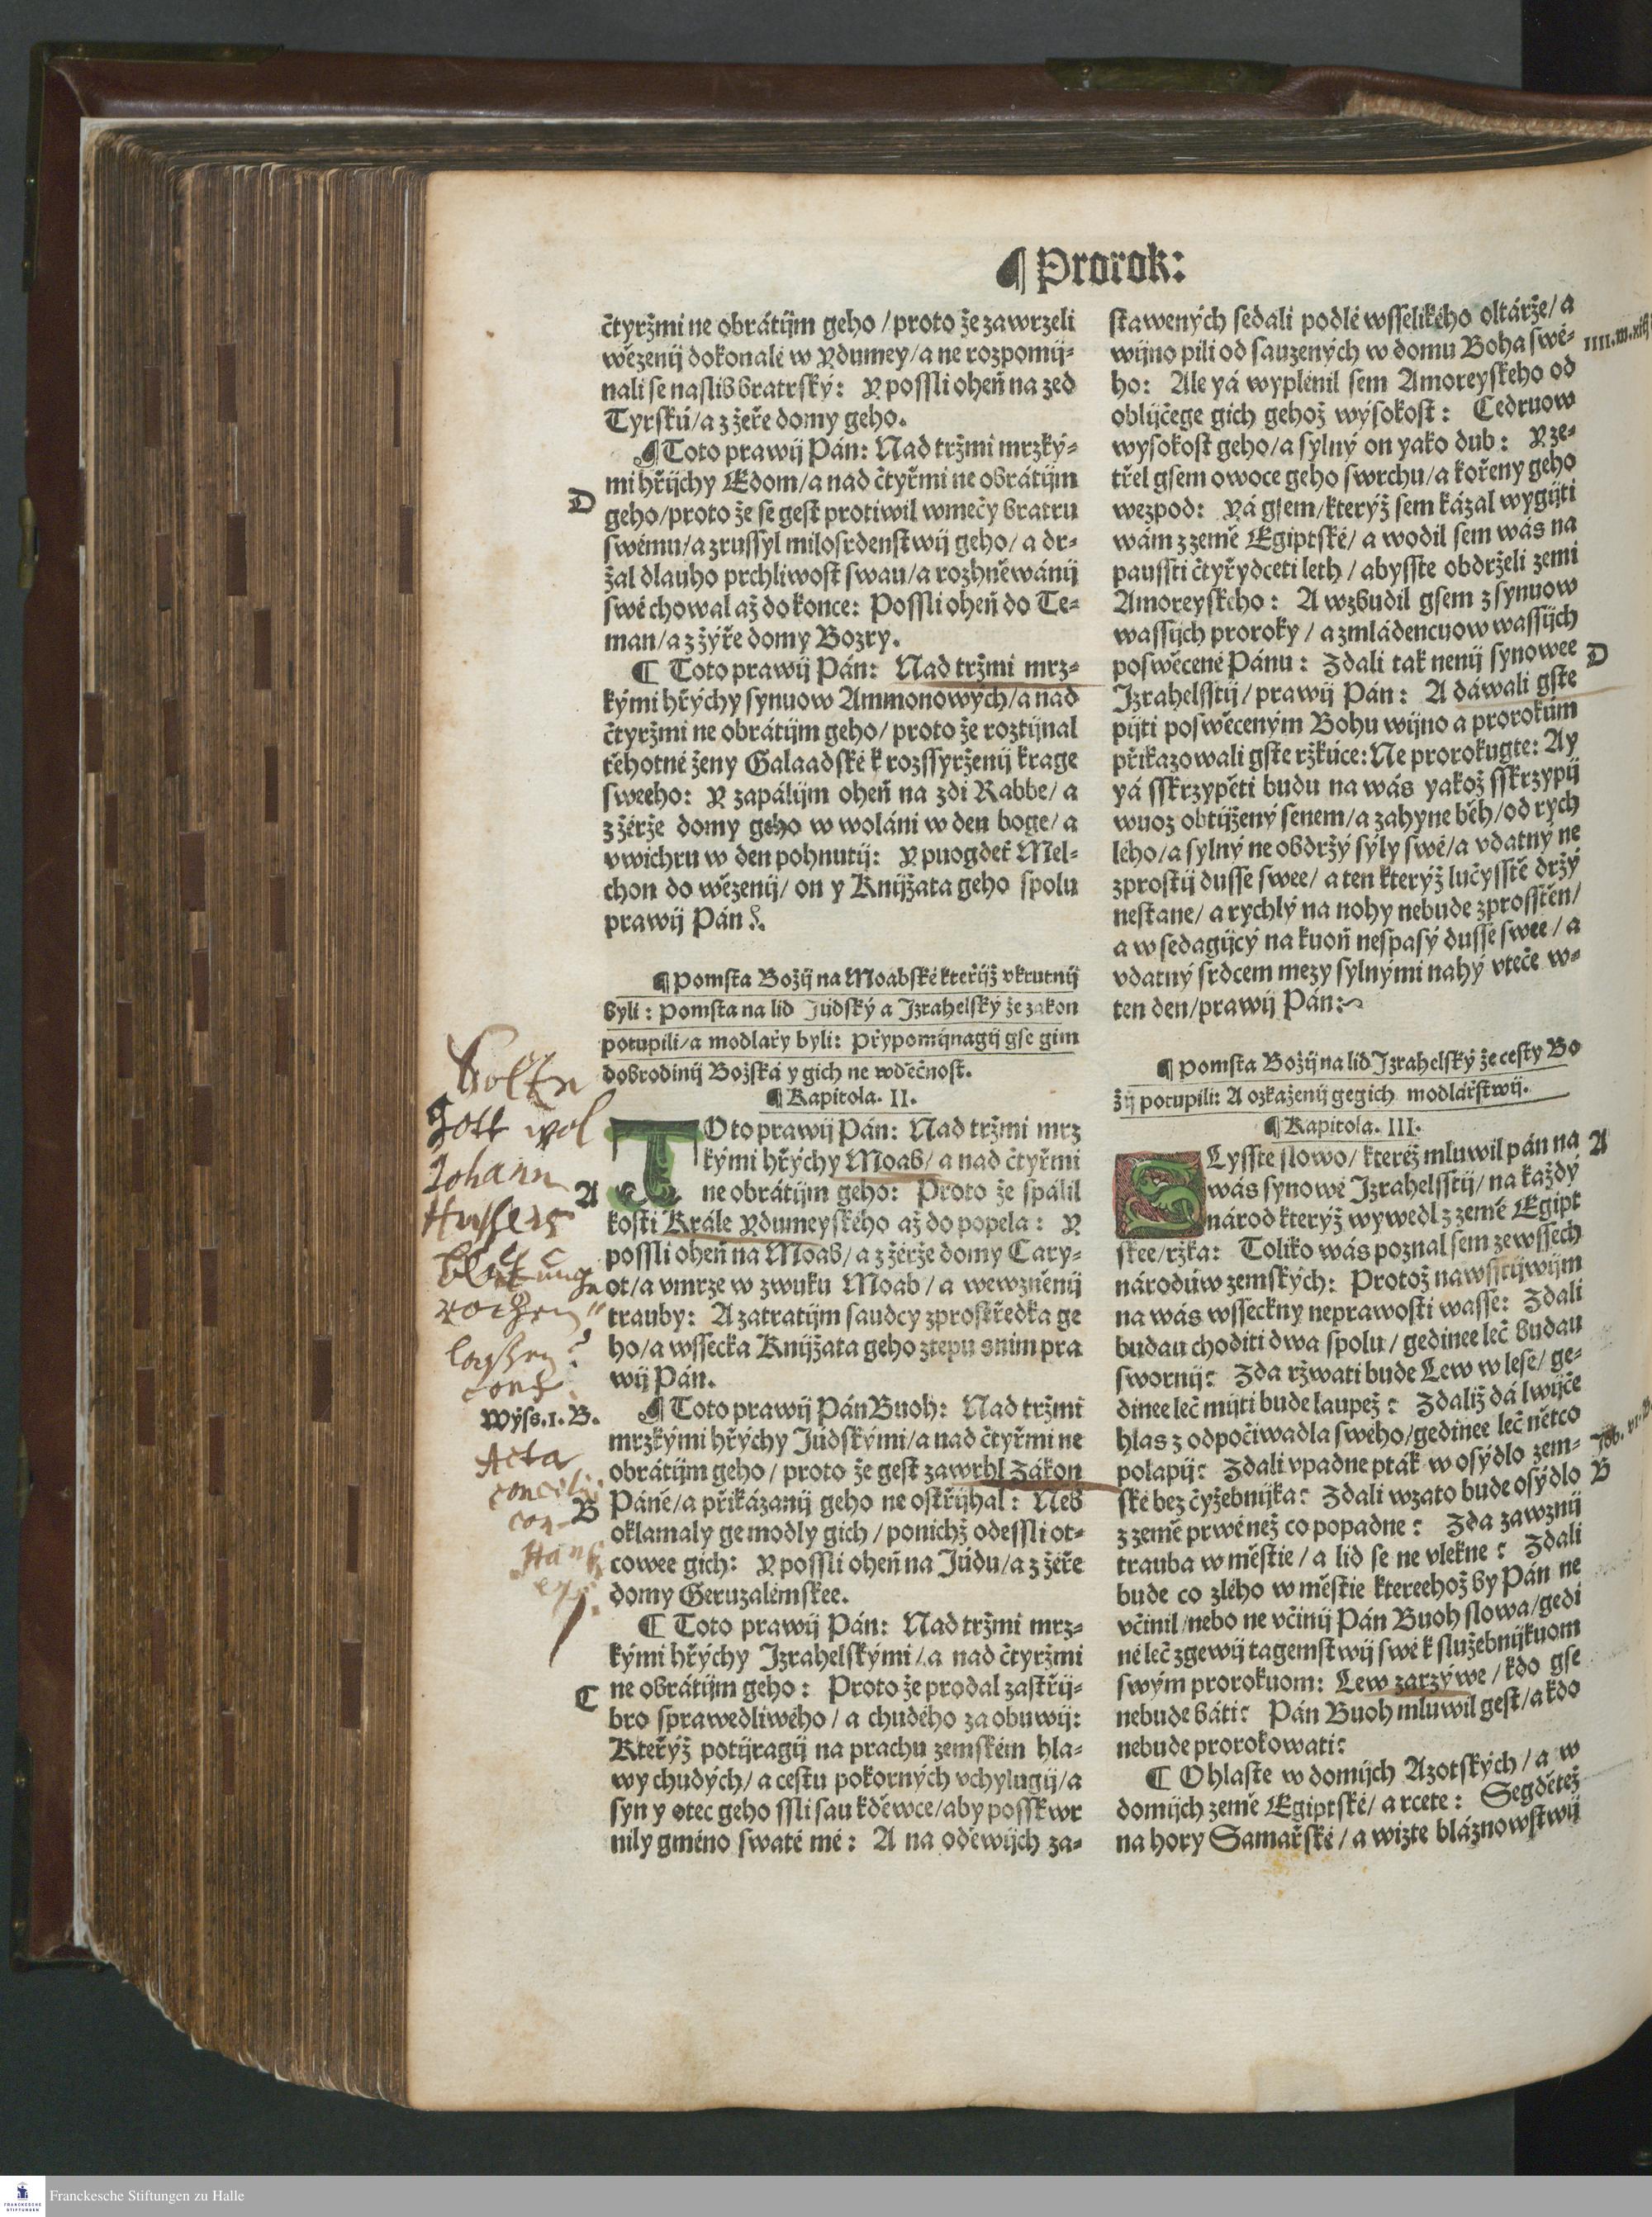 ¶ Prorok:
čtyržmi ne obrátijm geho / proto že zawrzeli
wězenij dokonalé w Ydumey / a ne rozpomij-
nali se na slib bratrský: Y possli oheň na zed
Tyrskú / a zžeře domy geho.
¶ Toto prawij Pán: Nad tržmi mrzký-
mi hřijchy Edom / a nad čtyřmi ne obrátijm
D
geho / proto že se gest protiwil w mečy bratru
swému / a zrussyl milosrdenstwij geho / a dr-
žal dlauho prchliwost swau / a rozhněwánij
swé chowal až do konce: Possli oheň do Te-
man / a zžýře domy Bozry.
¶ Toto prawij Pán: Nad tržmi mrz-
kými hřýchy synuow Ammonowých / a nad
čtyržmi ne obrátijm geho / proto že roztijnal
těhotné ženy Galaadské k rozssyrženij krage
sweeho: Y zapálijm oheň na zdi Rabbe / a
zžérže domy geho w woláni w den boge / a
v wichru w den pohnutij: Y puogdeť Mel-
chon do wězenij / on y Knijžata geho spolu
prawij Pán.
¶ Pomsta Božij na Moabské kteřijž vkrutnij
byli: Pomsta na lid Júdský a Izrahelský že zákon
potupili / a modlařy byli: Přypomijnagij gse gim
dobrodinij Božská y gich ne wděčnost.
¶ Kapitola. II.
TOto prawij Pán: Nad tržmi mrz
kými hřýchy Moab / a nad čtyřmi
A
ne obrátijm geho: Proto že spálil
kosti Krále Ydumeyského až do popela: Y
possli oheň na Moab / a zžérže domy Cary-
ot / a vmrze w zwuku Moab / a we wzněnij
trauby: A zatratijm saudcy z prostředka ge
ho / a wssecka Knijžata geho ztepu s nim pra
wij Pán.
Wýss. 1. B.
¶ Toto prawij Pán Buoh: Nad tržmi
mrzkými hřýchy Júdskými / a nad čtyřmi ne
obrátijm geho / proto že gest zawrhl Zákon
B
Páně / a přikázanij geho ne ostřijhal: Neb
oklamaly ge modly gich / po nichž odessli ot-
cowee gich: Y possli oheň na Júdu / a zžéře
domy Geruzalémskee.
¶ Toto prawij Pán: Nad tržmi mrz-
kými hřýchy Izrahelskými / a nad čtyržmi
C
ne obrátijm geho: Proto že prodal za střij-
bro sprawedliwého / a chudého za obuwij:
Kteřýž potijragij na prachu zemském hla-
wy chudých / a cestu pokorných vchylugij / a
syn y otec geho ssli sau k děwce / aby posskwr
nily gméno swaté mé: A na oděwijch za-
stawených sedali podlé wsselikého oltárže / a
wijno pili od sauzených w domu Boha swé-
ho: Ale yá wyplénil sem Amoreyského od
oblijčege gich gehož wýsokost: Cedruow
wysokost geho / a sylný on yako dub: Y ze-
třel gsem owoce geho swrchu / a kořeny geho
wezpod: Yá gsem / kterýž sem kázal wygijti
wám z země Egiptské / a wodil sem wás na
pausti čtyřydceti leth / abysste obdrželi zemi
Amoreyského: A wzbudil gsem z synuow
wassijch proroky / a z mládencuow wassijch
poswěcené Pánu: Zdali tak nenij synowee
D
Izrahelsstij / prawij Pán: A dáwali gste
pijti poswěceným Bohu wijno a prorokům
přikazowali gste ržkúce: Ne prorokugte: Ay
yá sskrzypěti budu na wás yakož sskrzypij
wuoz obtijžený senem / a zahyne běh / od rych
lého / a sylný ne obdržý sýly swé / a vdatný ne
zprostij dusse swee / a ten kterýž lučysstě držý
nestane / a rychlý na nohy nebude zprosstěn /
a w sedagijcý na kuoň nespasý dusse swee / a
vdatný srdcem mezy sylnými nahý vteče w-
ten den / prawij Pán:
¶ Pomsta Božij na lid Izrahelský že cesty Bo
žij potupili: A o zkaženij gegich modlářstwij.
¶ Kapitola. III.
A
SLysste slowo / kteréž mluwil pán na
wás synowé Izrahelsstij / na každý
národ kterýž wywedl z země Egipt
skee / ržka: Toliko wás poznal sem ze wssech
národúw zemských: Protož nawsstijwijm
na wás wsseckny neprawosti wasse: Zdali
budau choditi dwa spolu / gedinee leč budau
swornij: Zda ržwati bude Lew w lese / ge-
dinee leč mijti bude laupež: Zdaliž dá lwijče
hlas z odpočiwadla swého / gedinee leč nětco
polapij: Zdali vpadne pták w osýdlo zem-
B
ské bez čyžebnijka: Zdali wzato bude osýdlo
z země prwé než co popadne: Zda zawznij
trauba w městie / a lid se ne vlekne: Zdali
bude co zlého w městie ktereehož by Pán ne
včinil / nebo ne včinij Pán Buoh slowa / gedi
né leč zgewij tagemstwij swé k služebnijkuom
swým prorokuom: Lew zarzýwe / kdo gse
nebude báti: Pán Buoh mluwil gest / a kdo
nebude prorokowati:
¶ Ohlaste w domijch Azotských / a w
domijch země Egiptské / a rcete: Segdětež
na hory Samařské / a wizte bláznowstwij
Gott wol
Johann
Acta
Franckesche Stiftungen zu Halle